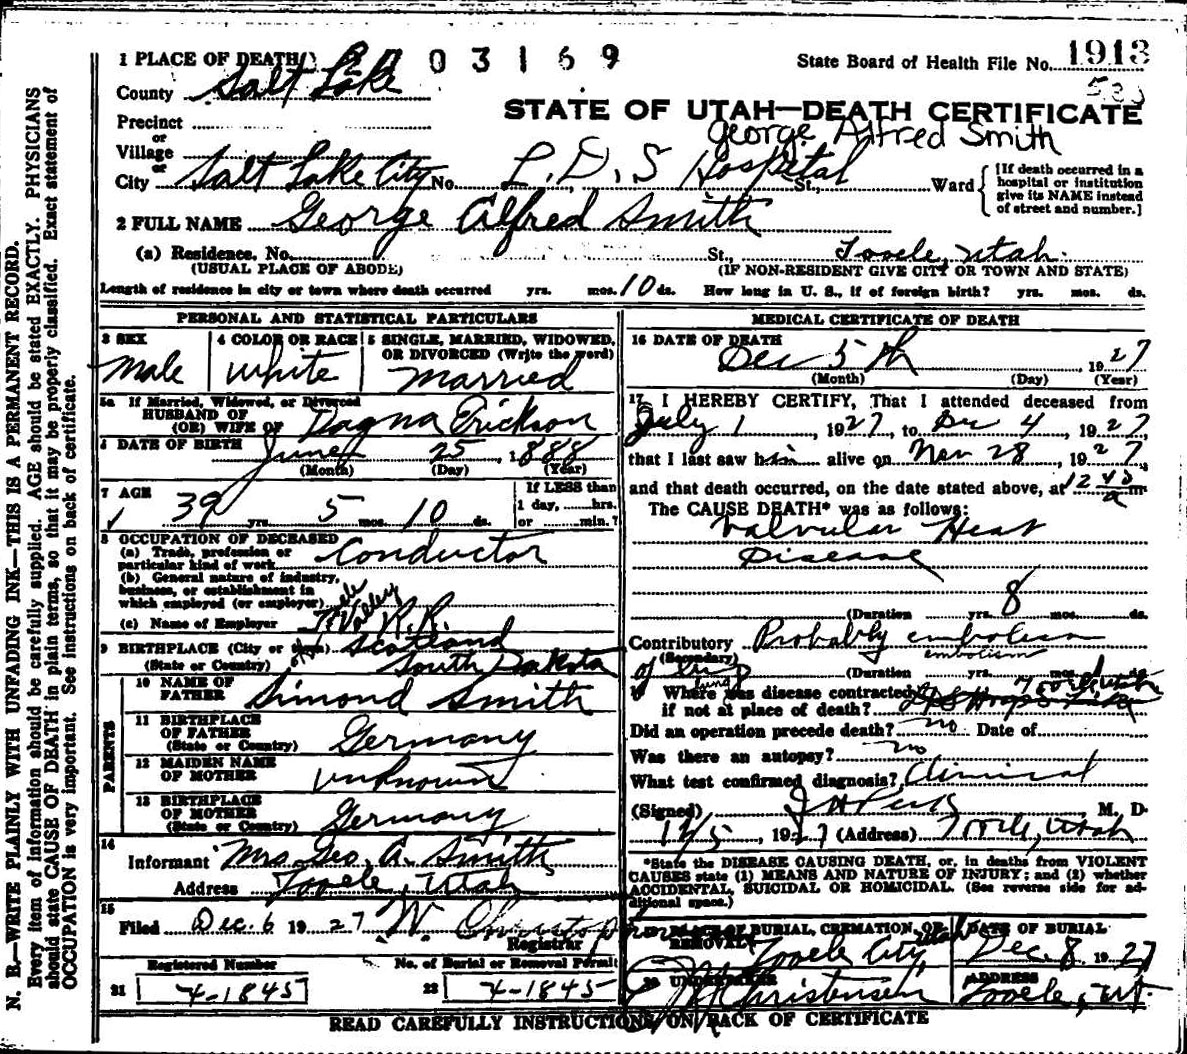 1 PLACE OF DEATH 03169 State Board of Health File No. 1913
County Salt Lake 533
STATE OF UTAH—DEATH CERTIFICATE
Precinct
or
Village
or
George Alfred Smith
City Salt Lake City No. L.D.S Hospital St., Ward [If death occurred in a hospital or institution give its NAME instead of street and number.]
2 FULL NAME George Alfred Smith
(a) Residence. No. St., Tooele, Utah.
(USUAL PLACE OF ABODE) (IF NON-RESIDENT GIVE CITY OR TOWN AND STATE)
Length of residence in city or town where death occurred yrs. mos. 10 ds. How long in U. S., if of foreign birth? yrs. mos. ds.
PERSONAL AND STATISTICAL PARTICULARS
3 SEX Male
4 COLOR OR RACE White
5 SINGLE, MARRIED, WIDOWED, OR DIVORCED (Write the word) Married
5a If Married, Widowed, or Divorced
HUSBAND OF
(OR) WIFE OF Dagna Erickson
6 DATE OF BIRTH June 25, 1888
(Month) (Day) (Year)
7 AGE 39 yrs. 5 mos. 10 ds.
If LESS than
1 day, hrs.
or min.?
8 OCCUPATION OF DECEASED
(a) Trade, profession or
particular kind of work Conductor
(b) General nature of industry,
business, or establishment in
which employed (or employer)
(c) Name of Employer Tooele Valley R.R.
9 BIRTHPLACE (City or town) Scotland
(State or Country) South Dakota
PARENTS
10 NAME OF
FATHER Simond Smith
11 BIRTHPLACE
OF FATHER
(State or Country) Germany
12 MAIDEN NAME
OF MOTHER unknown
13 BIRTHPLACE
OF MOTHER
(State or Country) Germany
14
Informant Mrs. Geo. A. Smith
Address Tooele, Utah
15
Filed Dec. 6 1927 W. Christopherson
Registrar
Registered Number No. of Burial or Removal Permit
21 4-1845 22 4-1845
MEDICAL CERTIFICATE OF DEATH
16 DATE OF DEATH
Dec 5th, 1927
(Month) (Day) (Year)
17 I HEREBY CERTIFY, That I attended deceased from
July 1, 1927, to Dec 4, 1927,
that I last saw him alive on Nov 28, 1927,
and that death occurred, on the date stated above, at 12 40 a m
The CAUSE DEATH* was as follows:
Valvular Heat
Disease
(Duration yrs. 8 mos. ds.
Contributory Probably embolism
(Secondary) embolism
of lung
lung (Duration yrs. mos. 1 ds.
18 Where was disease contracted Tooele, Utah
if not at place of death? LDS Hosp
Did an operation precede death? no Date of
Was there an autopsy? no
What test confirmed diagnosis? Clinical
(Signed) J H Peck M. D.
12/5, 1927 (Address) Tooele, Utah
*State the DISEASE CAUSING DEATH, or, in deaths from VIOLENT
CAUSES state (1) MEANS AND NATURE OF INJURY; and (2) whether
ACCIDENTAL, SUICIDAL OR HOMICIDAL. (See reverse side for ad-
ditional space.)
19 PLACE OF BURIAL, CREMATION, OR REMOVAL Tooele City, Utah
DATE OF BURIAL Dec. 8 1927
20 UNDERTAKER Christensen
ADDRESS Tooele, Ut.
READ CAREFULLY INSTRUCTIONS ON BACK OF CERTIFICATE
N. B.—WRITE PLAINLY WITH UNFADING INK—THIS IS A PERMANENT RECORD.
Every item of information should be carefully supplied. AGE should be stated EXACTLY. PHYSICIANS
should state CAUSE OF DEATH in plain terms, so that it may be properly classified. Exact statement of
OCCUPATION is very important. See instructions on back of certificate.